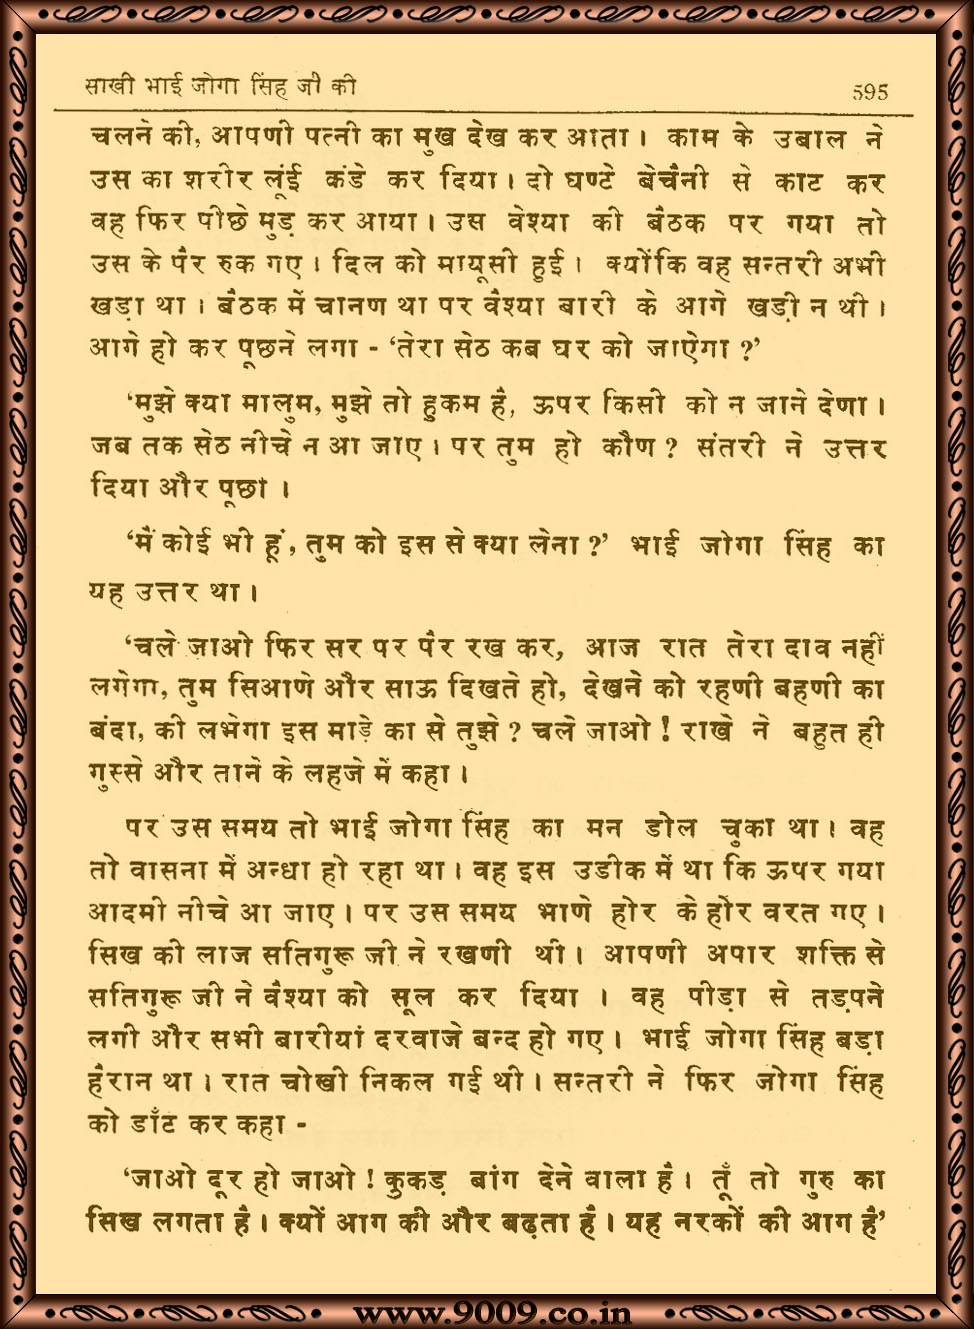 साखी भाई जोगा सिंह जी की 595
चलने की, आपणी पत्नी का मुख देख कर आता। काम के उबाल ने
उस का शरीर लूंई कंडे कर दिया। दो घण्टे बेचैनी से काट कर
वह फिर पीछे मुड़ कर आया। उस वेश्या की बैठक पर गया तो
उस के पैर रुक गए। दिल को मायूसी हुई। क्योंकि वह सन्तरी अभी
खड़ा था। बैठक में चानण था पर वैश्या बारी के आगे खड़ी न थी।
आगे हो कर पूछने लगा - ‘तेरा सेठ कब घर को जाऐगा ?’
‘मुझे क्या मालुम, मुझे तो हुकम है, ऊपर किसी को न जाने देणा।
जब तक सेठ नीचे न आ जाए। पर तुम हो कौण ? संतरी ने उत्तर
दिया और पूछा।
‘मैं कोई भी हूं, तुम को इस से क्या लेना ?’ भाई जोगा सिंह का
यह उत्तर था।
‘चले जाओ फिर सर पर पैर रख कर, आज रात तेरा दाव नहीं
लगेगा, तुम सिआणे और साऊ दिखते हो, देखने को रहणी बहणी का
बंदा, की लभेगा इस माड़े का से तुझे ? चले जाओ ! राखे ने बहुत ही
गुस्से और ताने के लहजे में कहा।
पर उस समय तो भाई जोगा सिंह का मन डोल चुका था। वह
तो वासना में अन्धा हो रहा था। वह इस उडीक में था कि ऊपर गया
आदमी नीचे आ जाए। पर उस समय भाणे होर के होर वरत गए।
सिख की लाज सतिगुरू जी ने रखणी थी। आपणी अपार शक्ति से
सतिगुरू जी ने वैश्या को सूल कर दिया । वह पीड़ा से तड़पने
लगी और सभी बारीयां दरवाजे बन्द हो गए। भाई जोगा सिंह बड़ा
हैरान था। रात चोखी निकल गई थी। सन्तरी ने फिर जोगा सिंह
को डाँट कर कहा -
‘जाओ दूर हो जाओ ! कुकड़ बांग देने वाला है। तूँ तो गुरु का
सिख लगता है। क्यों आग की और बढ़ता है। यह नरकों की आग है’
www.9009.co.in